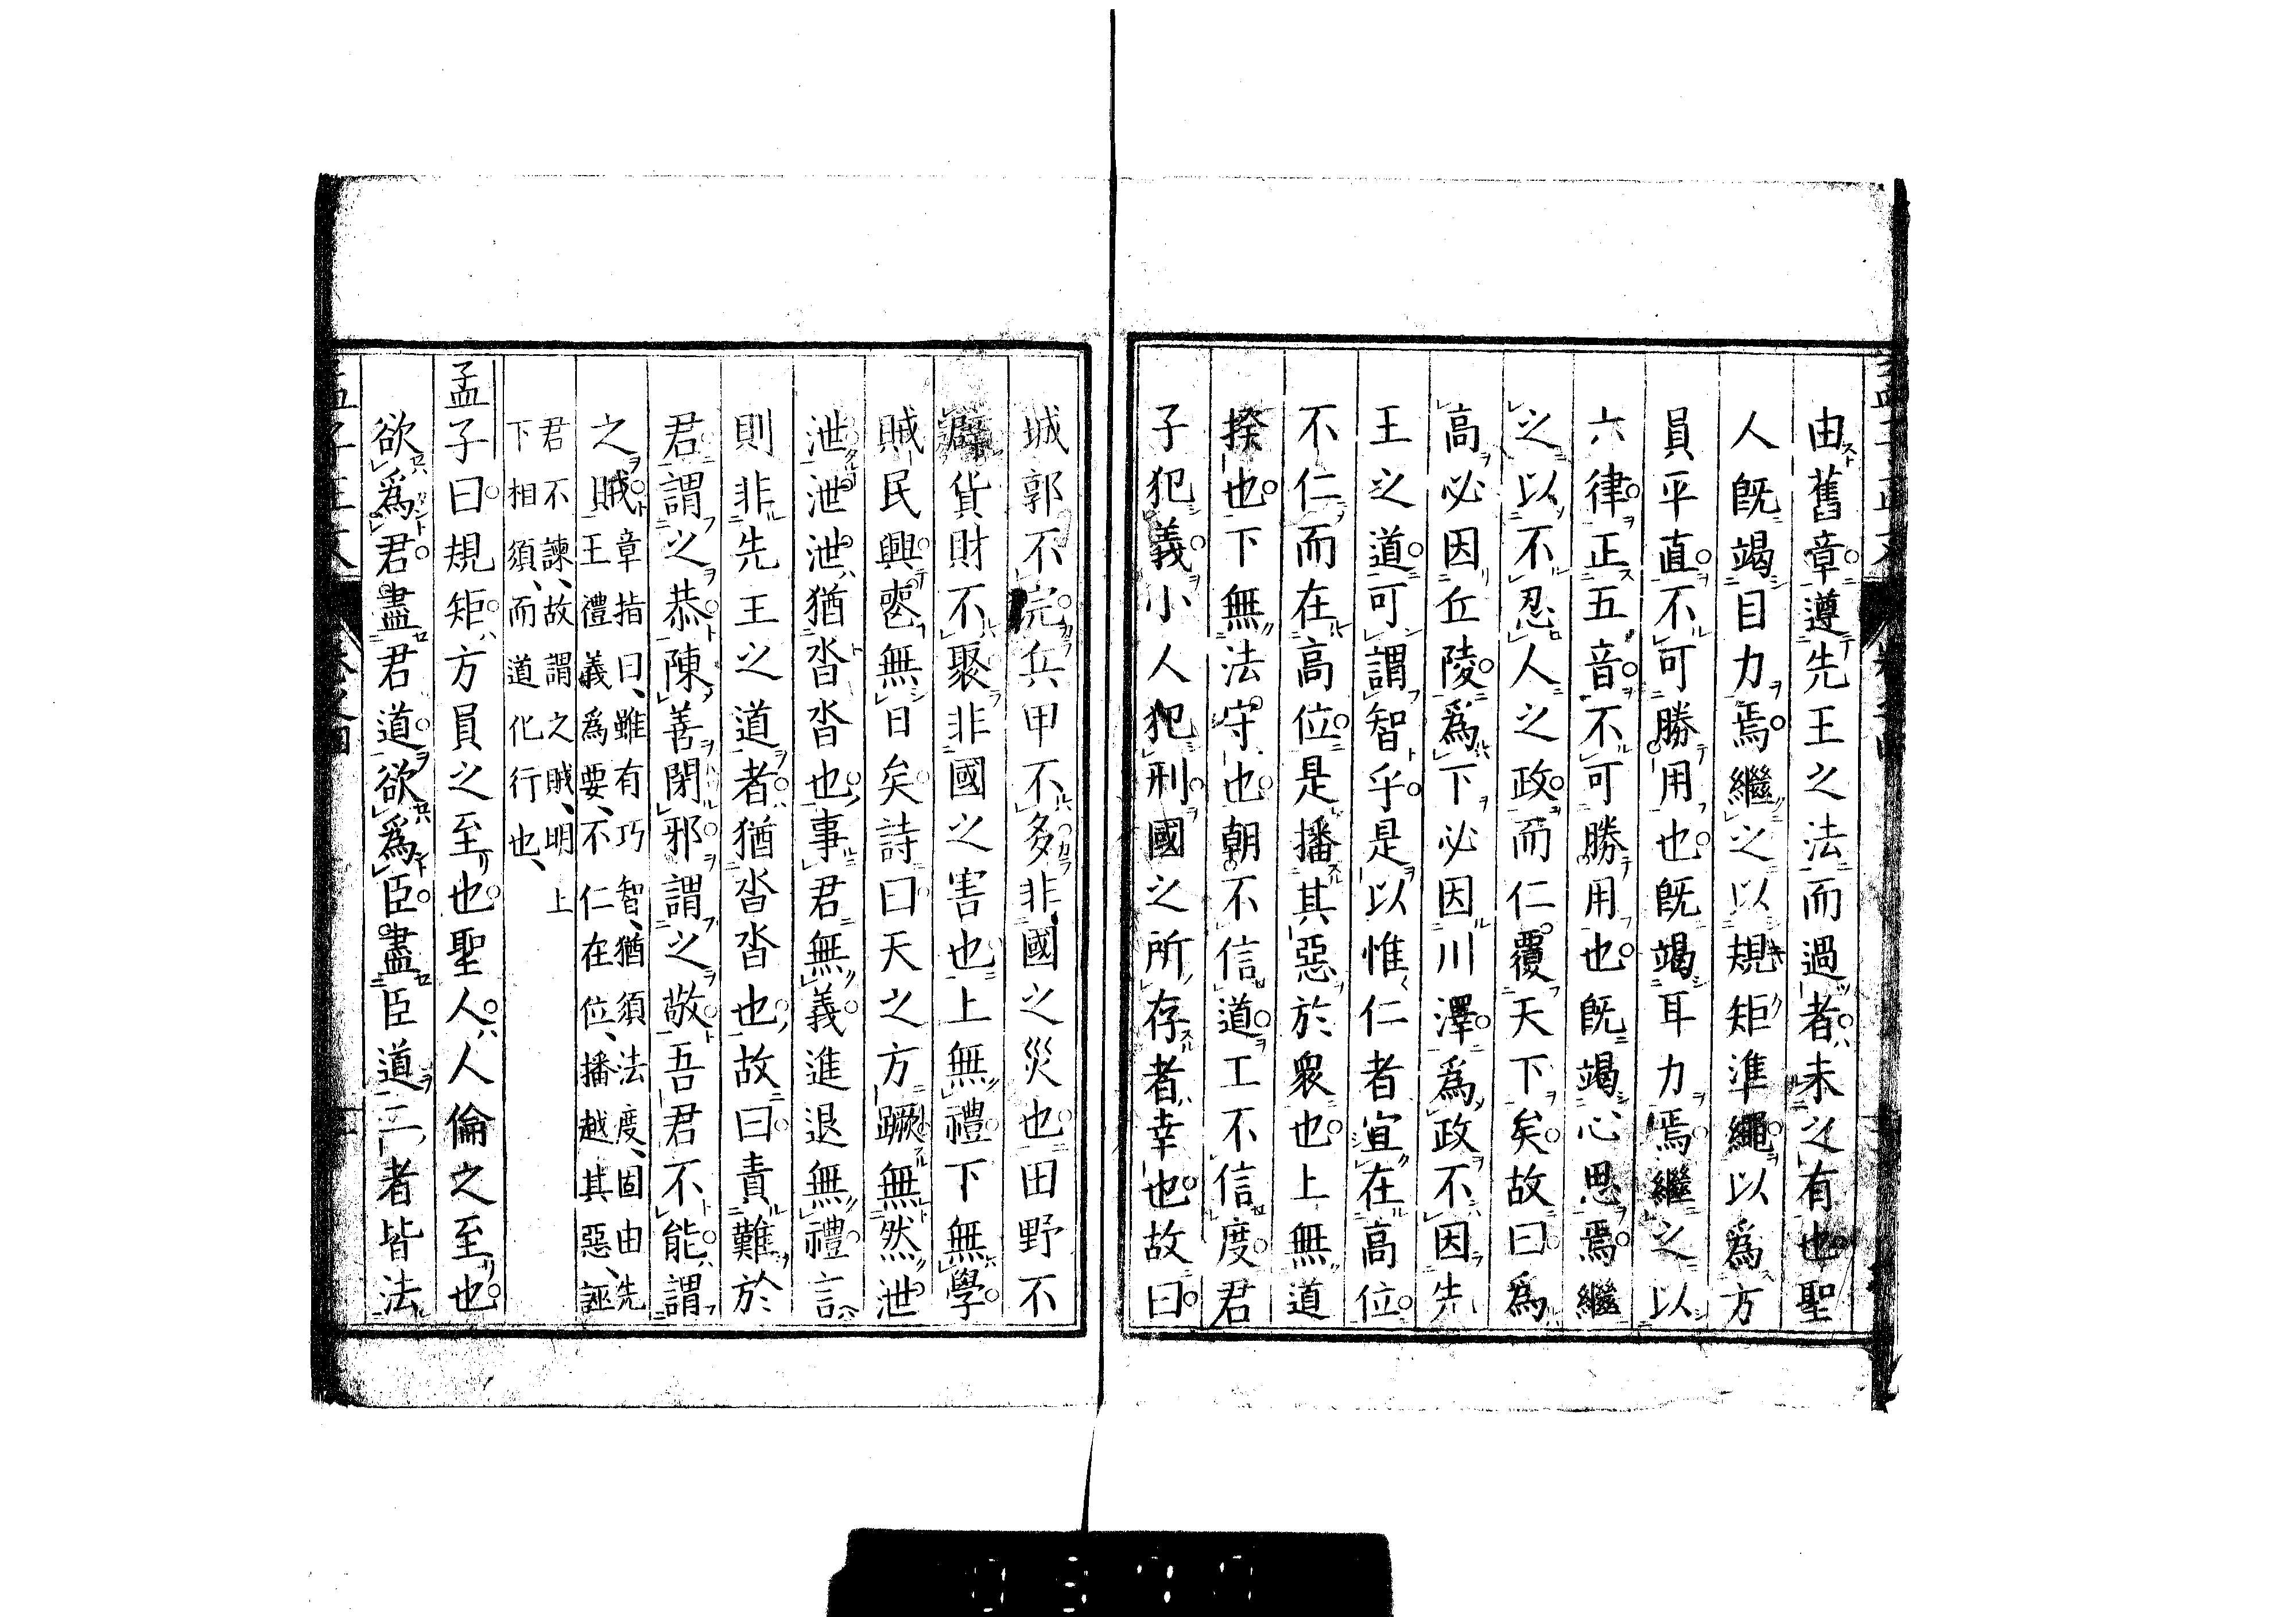 由舊章遵先王之法而過者未之有也聖
人既竭目力焉繼之以規矩準繩以爲方
員平直不可勝用也既竭耳力焉繼之以
六律正五音不可勝用也既竭心思焉繼
之以不忍人之政而仁覆天下矣故曰爲
高必因丘陵爲下必因川澤爲政不因先
王之道可謂智乎是以惟仁者宜在高位
不仁而在高位是播其惡於衆也上無道
揆也下無法守也朝不信道工不信度君
子犯義小人犯刑國之所存者幸也故曰
城郭不完兵甲不多非國之災也田野不
辟貨財不聚非國之害也上無禮下無學
賊民興喪無日矣詩曰天之方蹶無然泄
泄泄泄猶沓沓也事君無義進退無禮言
則非先王之道者猶沓沓也故曰責難於
君謂之恭陳善閉邪謂之敬吾君不能謂
之賊章指曰、雖有巧智、猶須法度、固由先
王禮義爲要、不仁在位、播越其惡、誣
君不諫、故謂之賊、明上
下相須、而道化行也、
孟子曰規矩方員之至也聖人人倫之至也
欲爲君盡君道欲爲臣盡臣道二者皆法